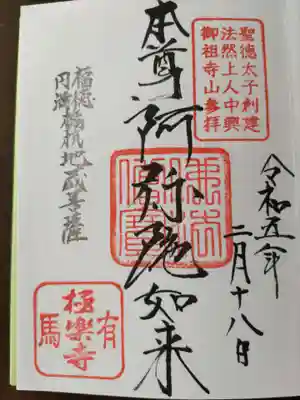 聖徳太子創建
法然上人中興
御祖寺山参拝
令和五年
二月十八日
本尊阿弥陀如来
福徳
円満
地蔵菩薩
有馬
極楽寺